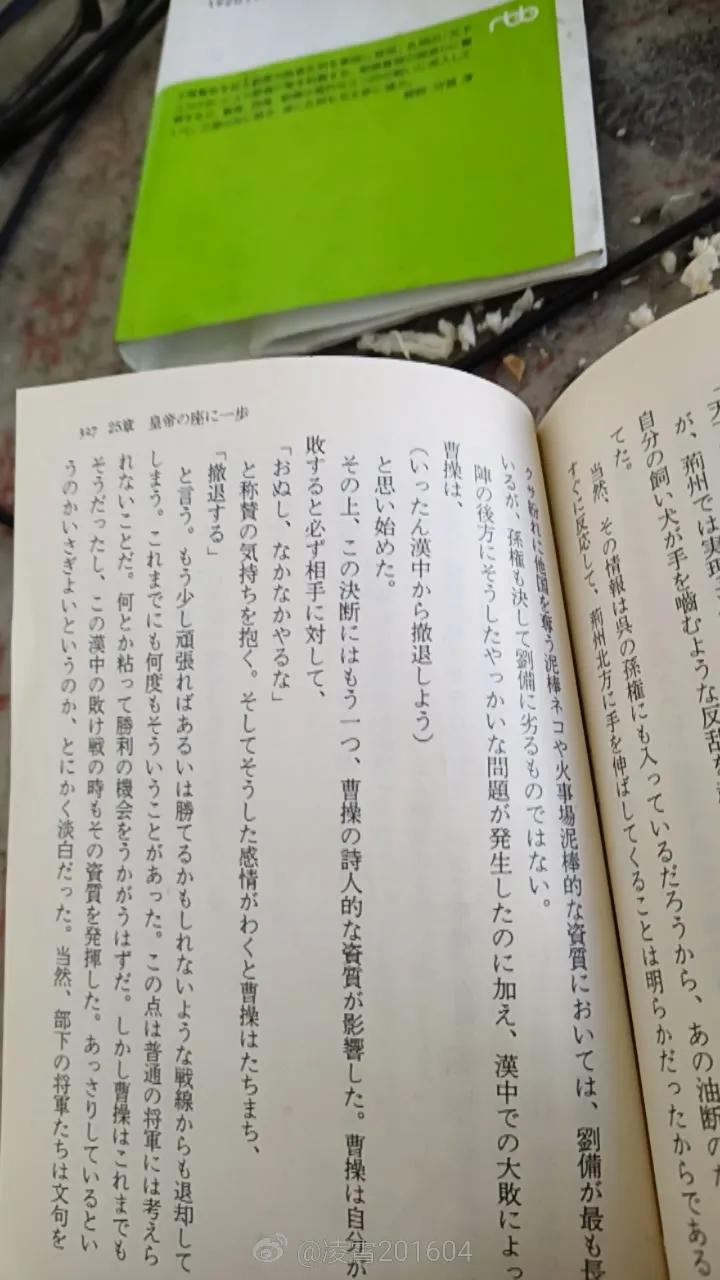 自分の飼い犬が手を噛むような反乱
が、荊州では実現
てた。
当然、その情報は呉の孫権にも入っているだろうから、あの油断の
すぐに反応して、荊州北方に手を伸ばしてくることは明らかだったからである
327 25章 皇帝の座に一歩
クサ紛れに他国を奪う泥棒ネコや火事場泥棒的な資質においては、劉備が最も長
いるが、孫権も決して劉備に劣るものではない。
陣の後方にそうしたやっかいな問題が発生したのに加え、漢中での大敗によっ
曹操は、
（いったん漢中から撤退しよう）
と思い始めた。
その上、この決断にはもう一つ、曹操の詩人的な資質が影響した。曹操は自分が
敗すると必ず相手に対して、
「おぬし、なかなかやるな」
と称賛の気持ちを抱く。そしてそうした感情がわくと曹操はたちまち、
「撤退する」
と言う。もう少し頑張ればあるいは勝てるかもしれないような戦線からも退却して
しまう。これまでにも何度もそういうことがあった。この点は普通の将軍には考えら
れないことだ。何とか粘って勝利の機会をうかがうはずだ。しかし曹操はこれまでも
そうだったし、この漢中の敗け戦の時もその資質を発揮した。あっさりしているとい
うのかいさぎよいというのか、とにかく淡白だった。当然、部下の将軍たちは文句を
@凌霄201604